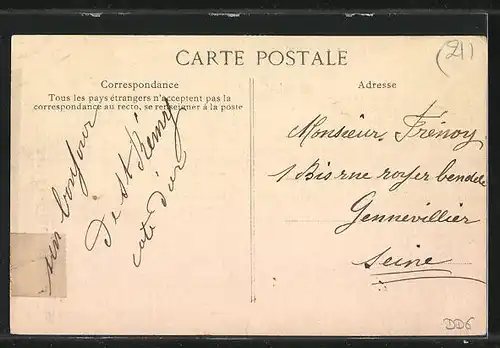 CARTE POSTALE
(21)
Correspondance
Tous les pays étrangers n'acceptent pas la
correspondance au recto, se renseigner à la poste
un bonjour
De St Rémy
cote d'or
Adresse
Monsieur Frénoy
1 Bis rue royer bendele
Gennevillier
Seine
DD6